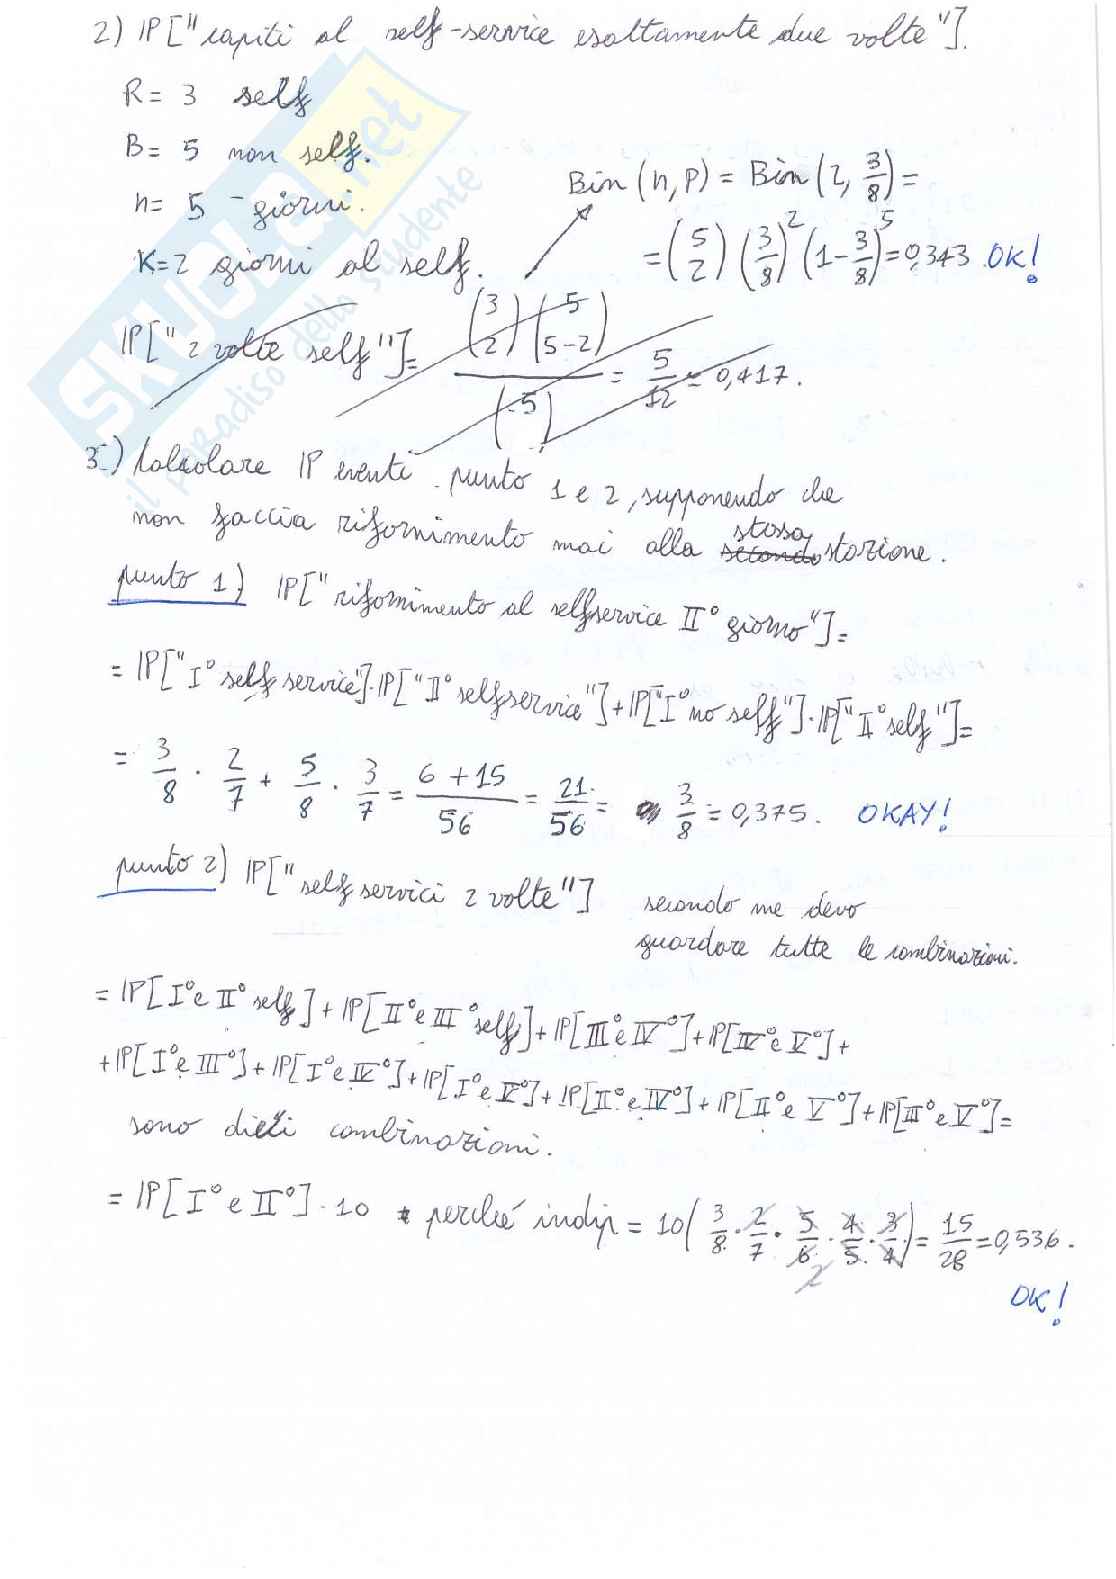 2) IP["capiti al self-service esattamente due volte"].
R = 3 self
B = 5 non self.
n = 5 giorni.
K=2 giorni al self.
Bin (n, p) = Bin (2, 3/8) =
= (5 2) (3/8)^2 (1-3/8)^5 = 0,343 OK!
IP["2 volte self"] = (3 2)(5 5-2) / (5) = 5/12 = 0,417.
3) Calcolare IP eventi punto 1 e 2, supponendo che
non faccia rifornimento mai alla stessa stazione.
punto 1) IP["rifornimento al selfservice II° giorno"] =
= IP["I° self service"]·IP["II° selfservice"] + IP["I° no self"]·IP["II° self"] =
= 3/8 · 2/7 + 5/8 · 3/7 = 6+15/56 = 21/56 = 3/8 = 0,375. OKAY!
punto 2) IP["self servici 2 volte"] secondo me devo
guardare tutte le combinazioni.
= IP[I° e II° self] + IP[II° e III° self] + IP[III° e IV°] + IP[IV° e V°] +
+ IP[I° e III°] + IP[I° e IV°] + IP[I° e V°] + IP[II° e IV°] + IP[II° e V°] + IP[III° e V°] =
sono dieci combinazioni.
= IP[I° e II°] · 10 perché indip = 10(3/8 · 2/7 · 5/6 · 4/5 · 3/4) = 15/28 = 0,536.
2
OK!
SKUOLA.net
il paradiso dello studente